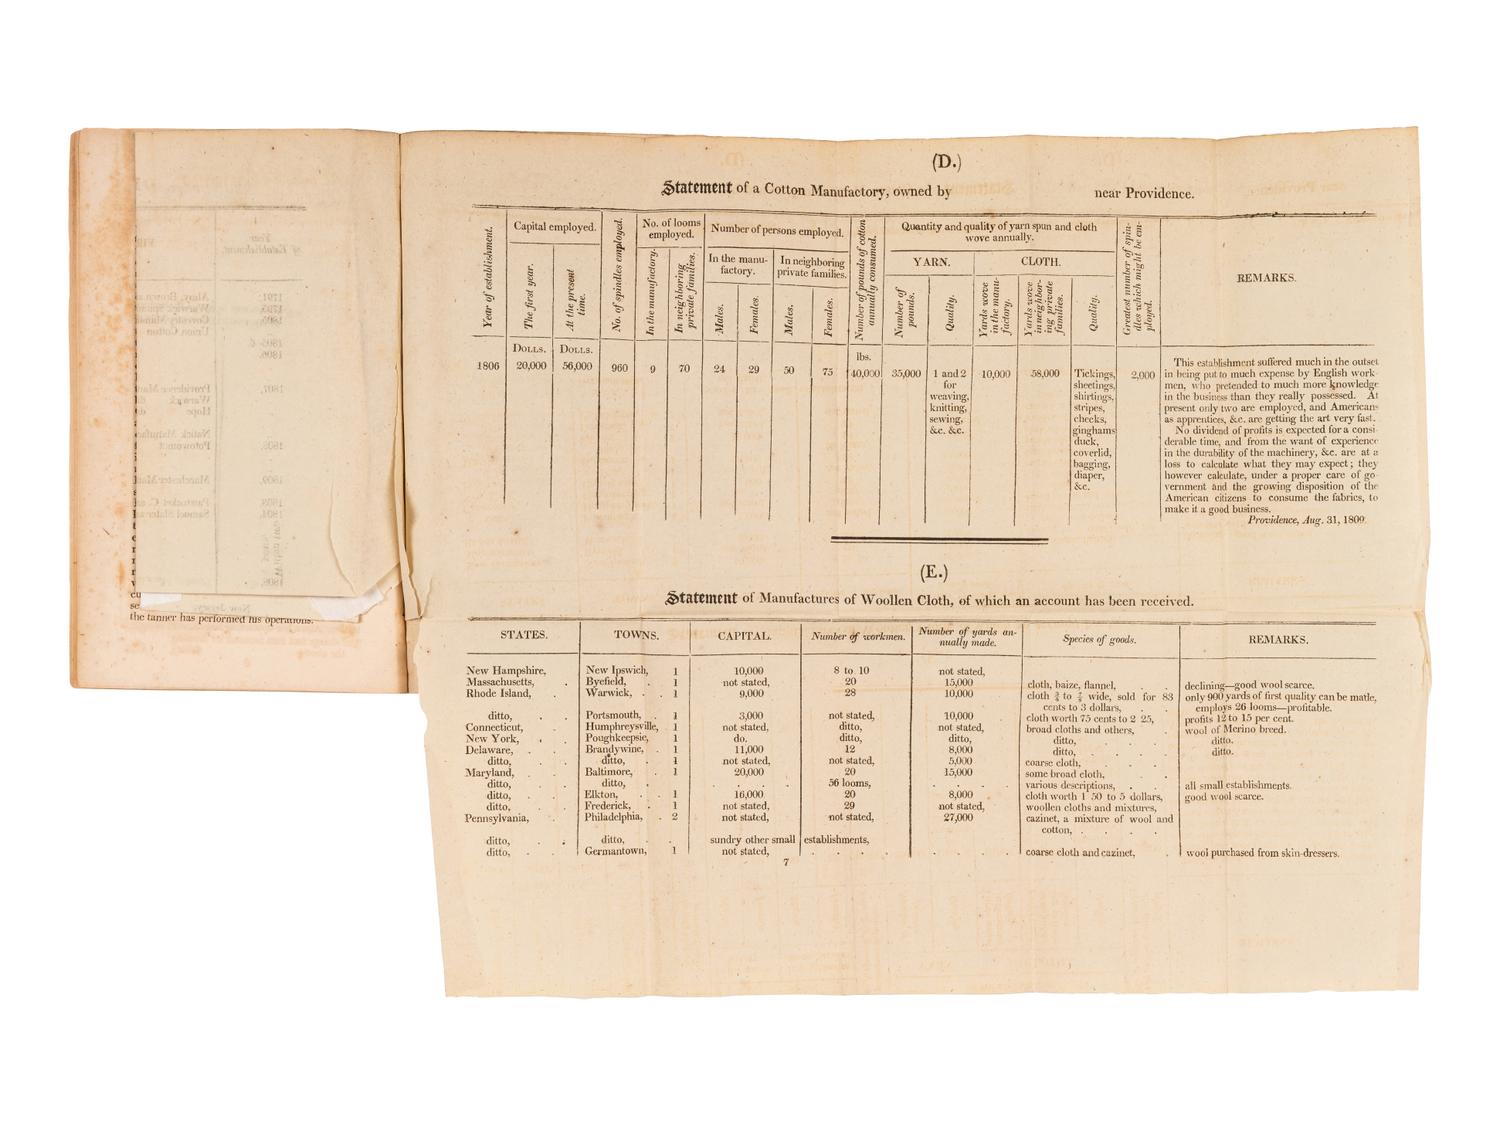 (D.)
Statement of a Cotton Manufactory, owned by near Providence.
Year of establishment.
Capital employed.
The first year.
At the present time.
No. of spindles employed.
No. of looms employed.
In the manufactory.
In neighboring private families.
Number of persons employed.
In the manu-
factory.
In neighboring
private families.
Males.
Females.
Males.
Females.
Number of pounds of cotton
annually consumed.
Quantity and quality of yarn spun and cloth
wove annually.
YARN.
CLOTH.
Number of
pounds.
Quality.
Yards wove
in the manu-
factory.
Yards wove
in neighbor-
ing private
families.
Quality.
Greatest number of spin-
dles which might be em-
ployed.
REMARKS.
DOLLS. DOLLS. lbs.
1806 20,000 56,000 960 9 70 24 29 50 75 40,000 35,000 1 and 2 10,000 58,000 Tickings, 2,000
for
weaving,
knitting,
sewing,
&c. &c.
sheetings,
shirtings,
stripes,
checks,
ginghams
duck,
coverlid,
bagging,
diaper,
&c.
This establishment suffered much in the outset
in being put to much expense by English work-
men, who pretended to much more knowledge
in the business than they really possessed. At
present only two are employed, and Americans
as apprentices, &c. are getting the art very fast.
No dividend of profits is expected for a consi-
derable time, and from the want of experience
in the durability of the machinery, &c. are at a
loss to calculate what they may expect; they
however calculate, under a proper care of go-
vernment and the growing disposition of the
American citizens to consume the fabrics, to
make it a good business.
Providence, Aug. 31, 1809.
(E.)
Statement of Manufactures of Woollen Cloth, of which an account has been received.
STATES. TOWNS. CAPITAL. Number of workmen. Number of yards an-
nually made. Species of goods. REMARKS.
New Hampshire, New Ipswich, 1 10,000 8 to 10 not stated,
Massachusetts, . Byefield, . 1 not stated, 20 15,000 cloth, baize, flannel, . . declining—good wool scarce.
Rhode Island, . Warwick, . . 1 9,000 28 10,000 cloth ¾ to ⅞ wide, sold for 83 only 900 yards of first quality can be made,
cents to 3 dollars, . . employs 26 looms—profitable.
ditto, . . Portsmouth, . 1 3,000 not stated, 10,000 cloth worth 75 cents to 2 25, profits 12 to 15 per cent.
Connecticut, . Humphreysville, 1 not stated, ditto, not stated, broad cloths and others, . wool of Merino breed.
New York, . . Poughkeepsie, 1 do. ditto, ditto, ditto, . . . . ditto.
Delaware, . . Brandywine, . 1 11,000 12 8,000 ditto, . . . . ditto.
ditto, . . ditto, . 1 not stated, not stated, 5,000 coarse cloth, . . .
Maryland, . . Baltimore, . 1 20,000 20 15,000 some broad cloth, . .
ditto, . . ditto, . . . . 56 looms, . . . various descriptions, . . all small establishments.
ditto, . . Elkton, . . 1 16,000 20 8,000 cloth worth 1 50 to 5 dollars, good wool scarce.
ditto, . . Frederick, . 1 not stated, 29 not stated, woollen cloths and mixtures,
Pennsylvania, . Philadelphia, . 2 not stated, not stated, 27,000 cazinet, a mixture of wool and
cotton, . . . .
ditto, . . ditto, . . sundry other small establishments,
ditto, . . Germantown, 1 not stated, . . . . . . . . coarse cloth and cazinet, . wool purchased from skin-dressers.
7
cu
se
the tanner has performed his operations.